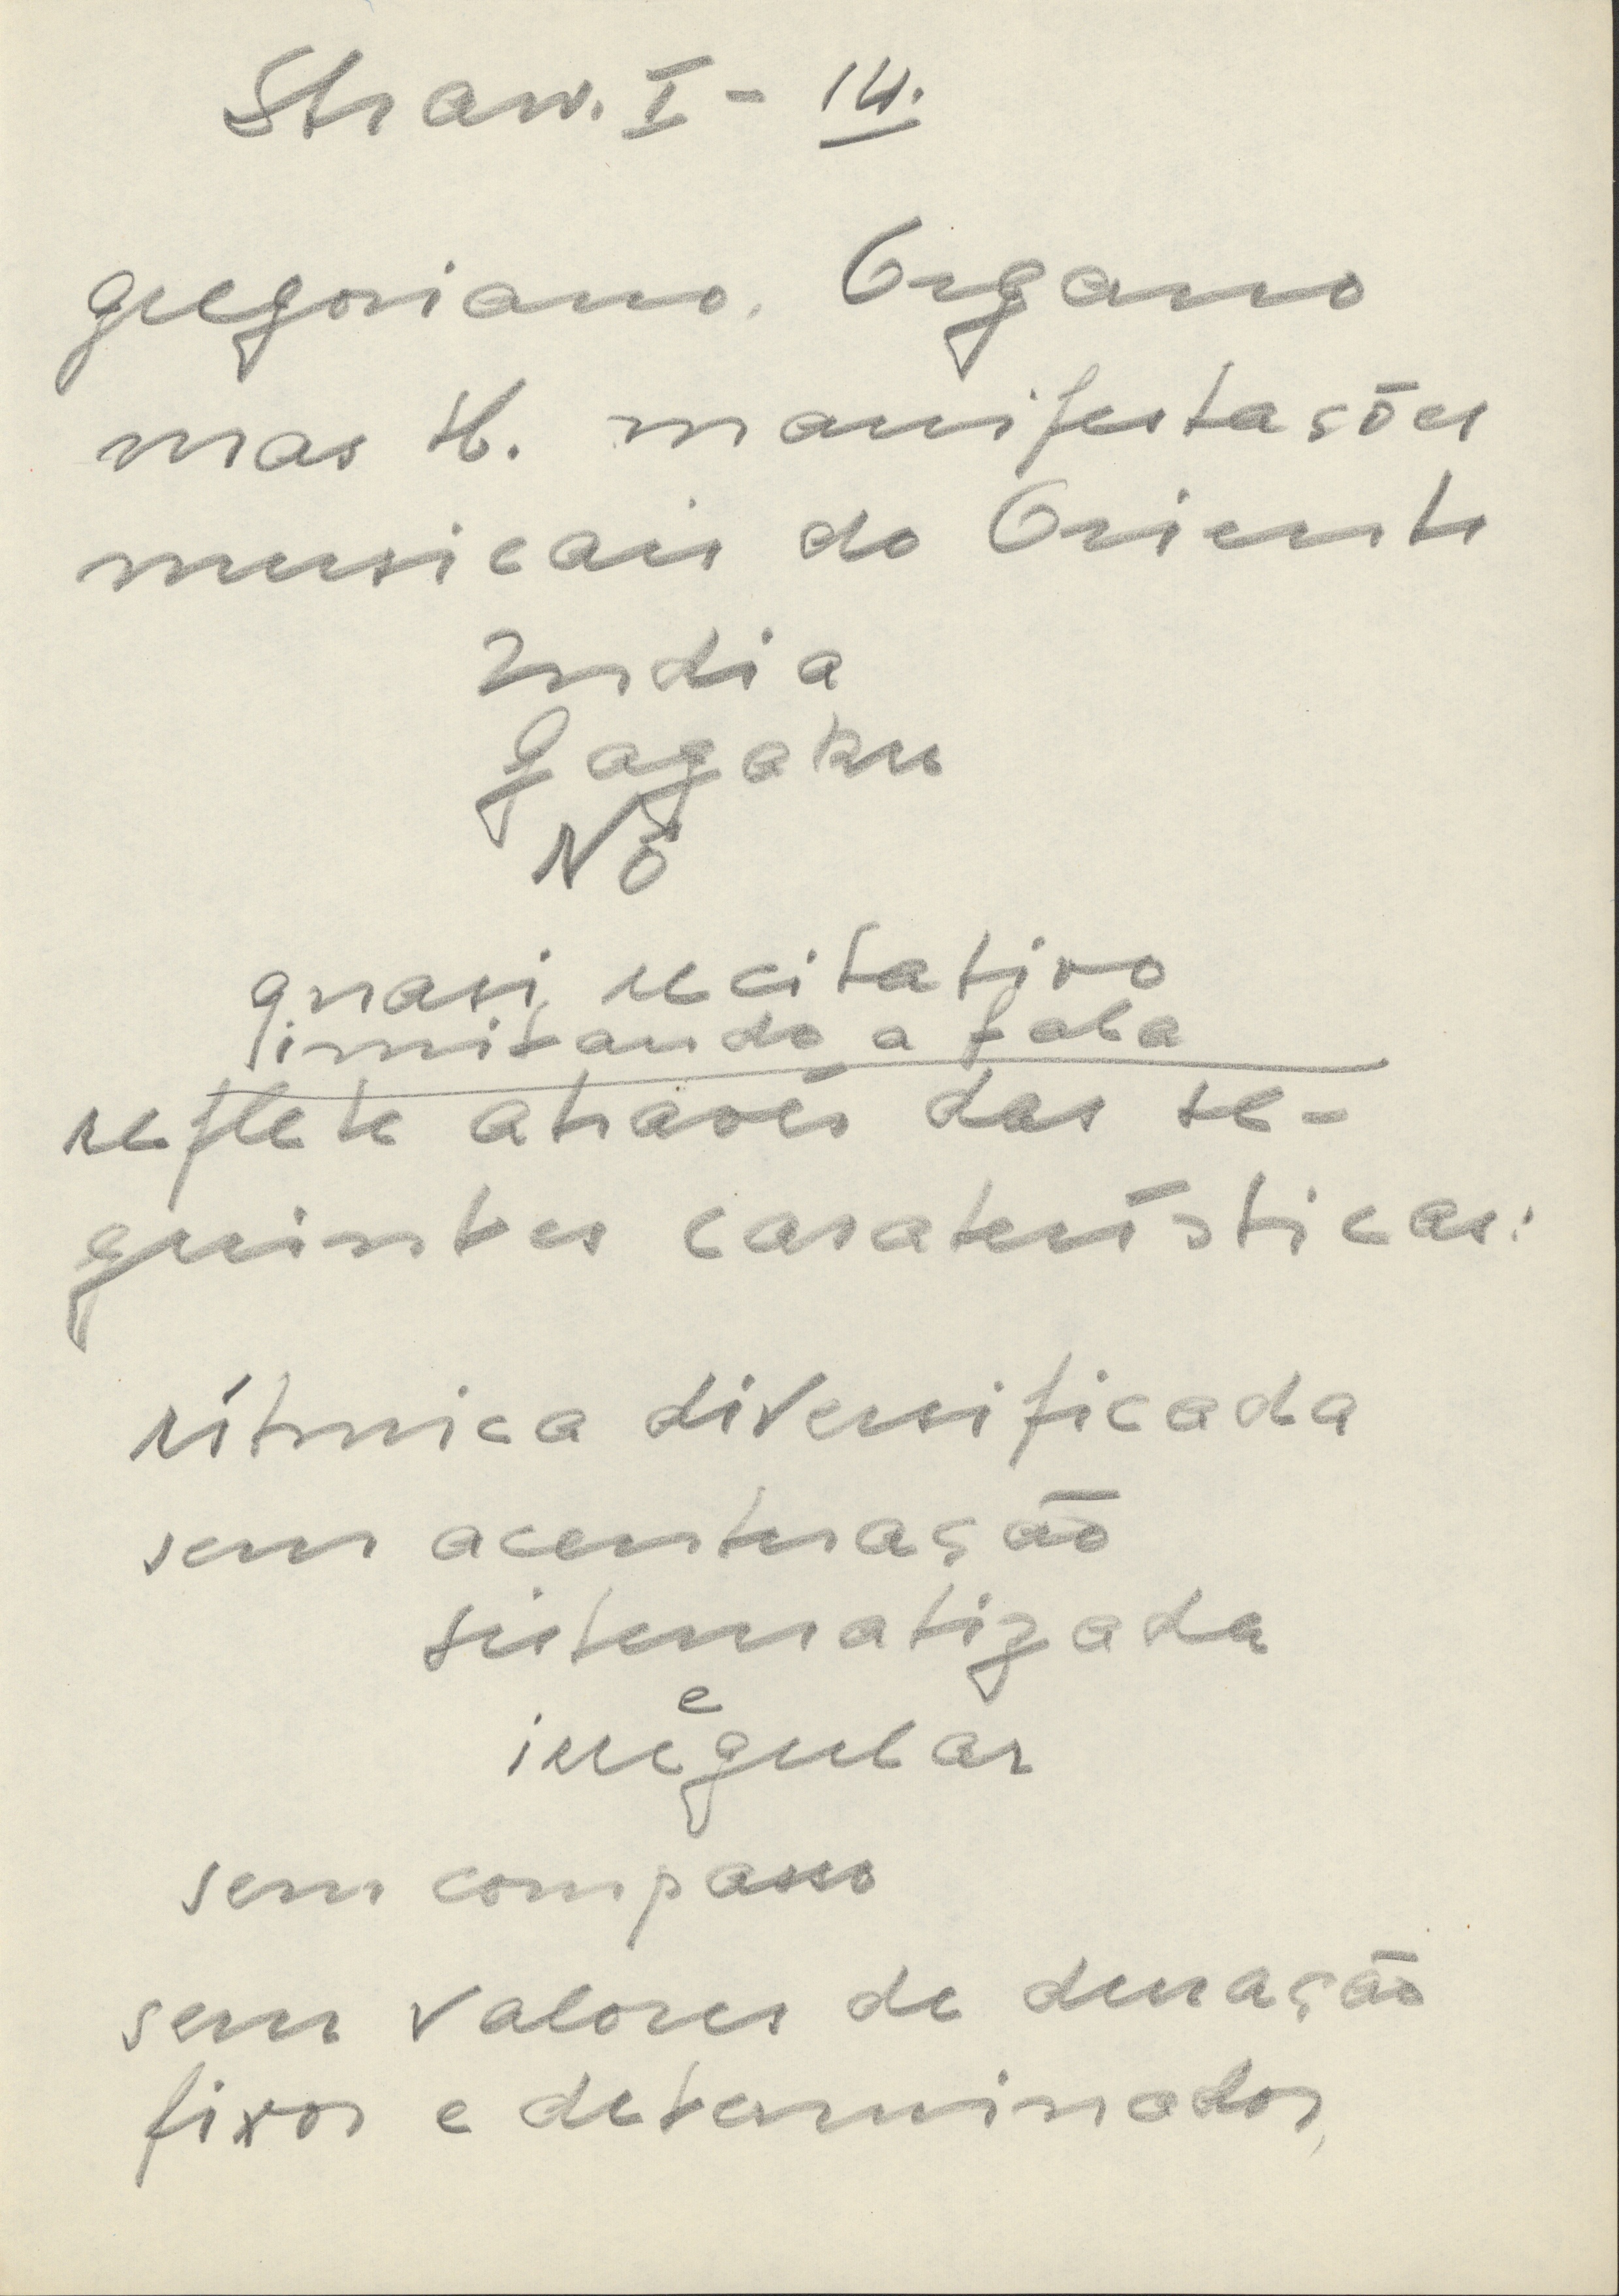 Straw. I - 14.
gregoriano. Organo
mas tb. manifestações
musicais do Oriente
India
Gagaku
Nô
quasi recitativo
imitando a fala
reflete através das se-
guintes caraterísticas:
rítmica diversificada
sem acentuação
sistematizada
e
irregular
sem compasso
sem valores de duração
fixos e determinados,